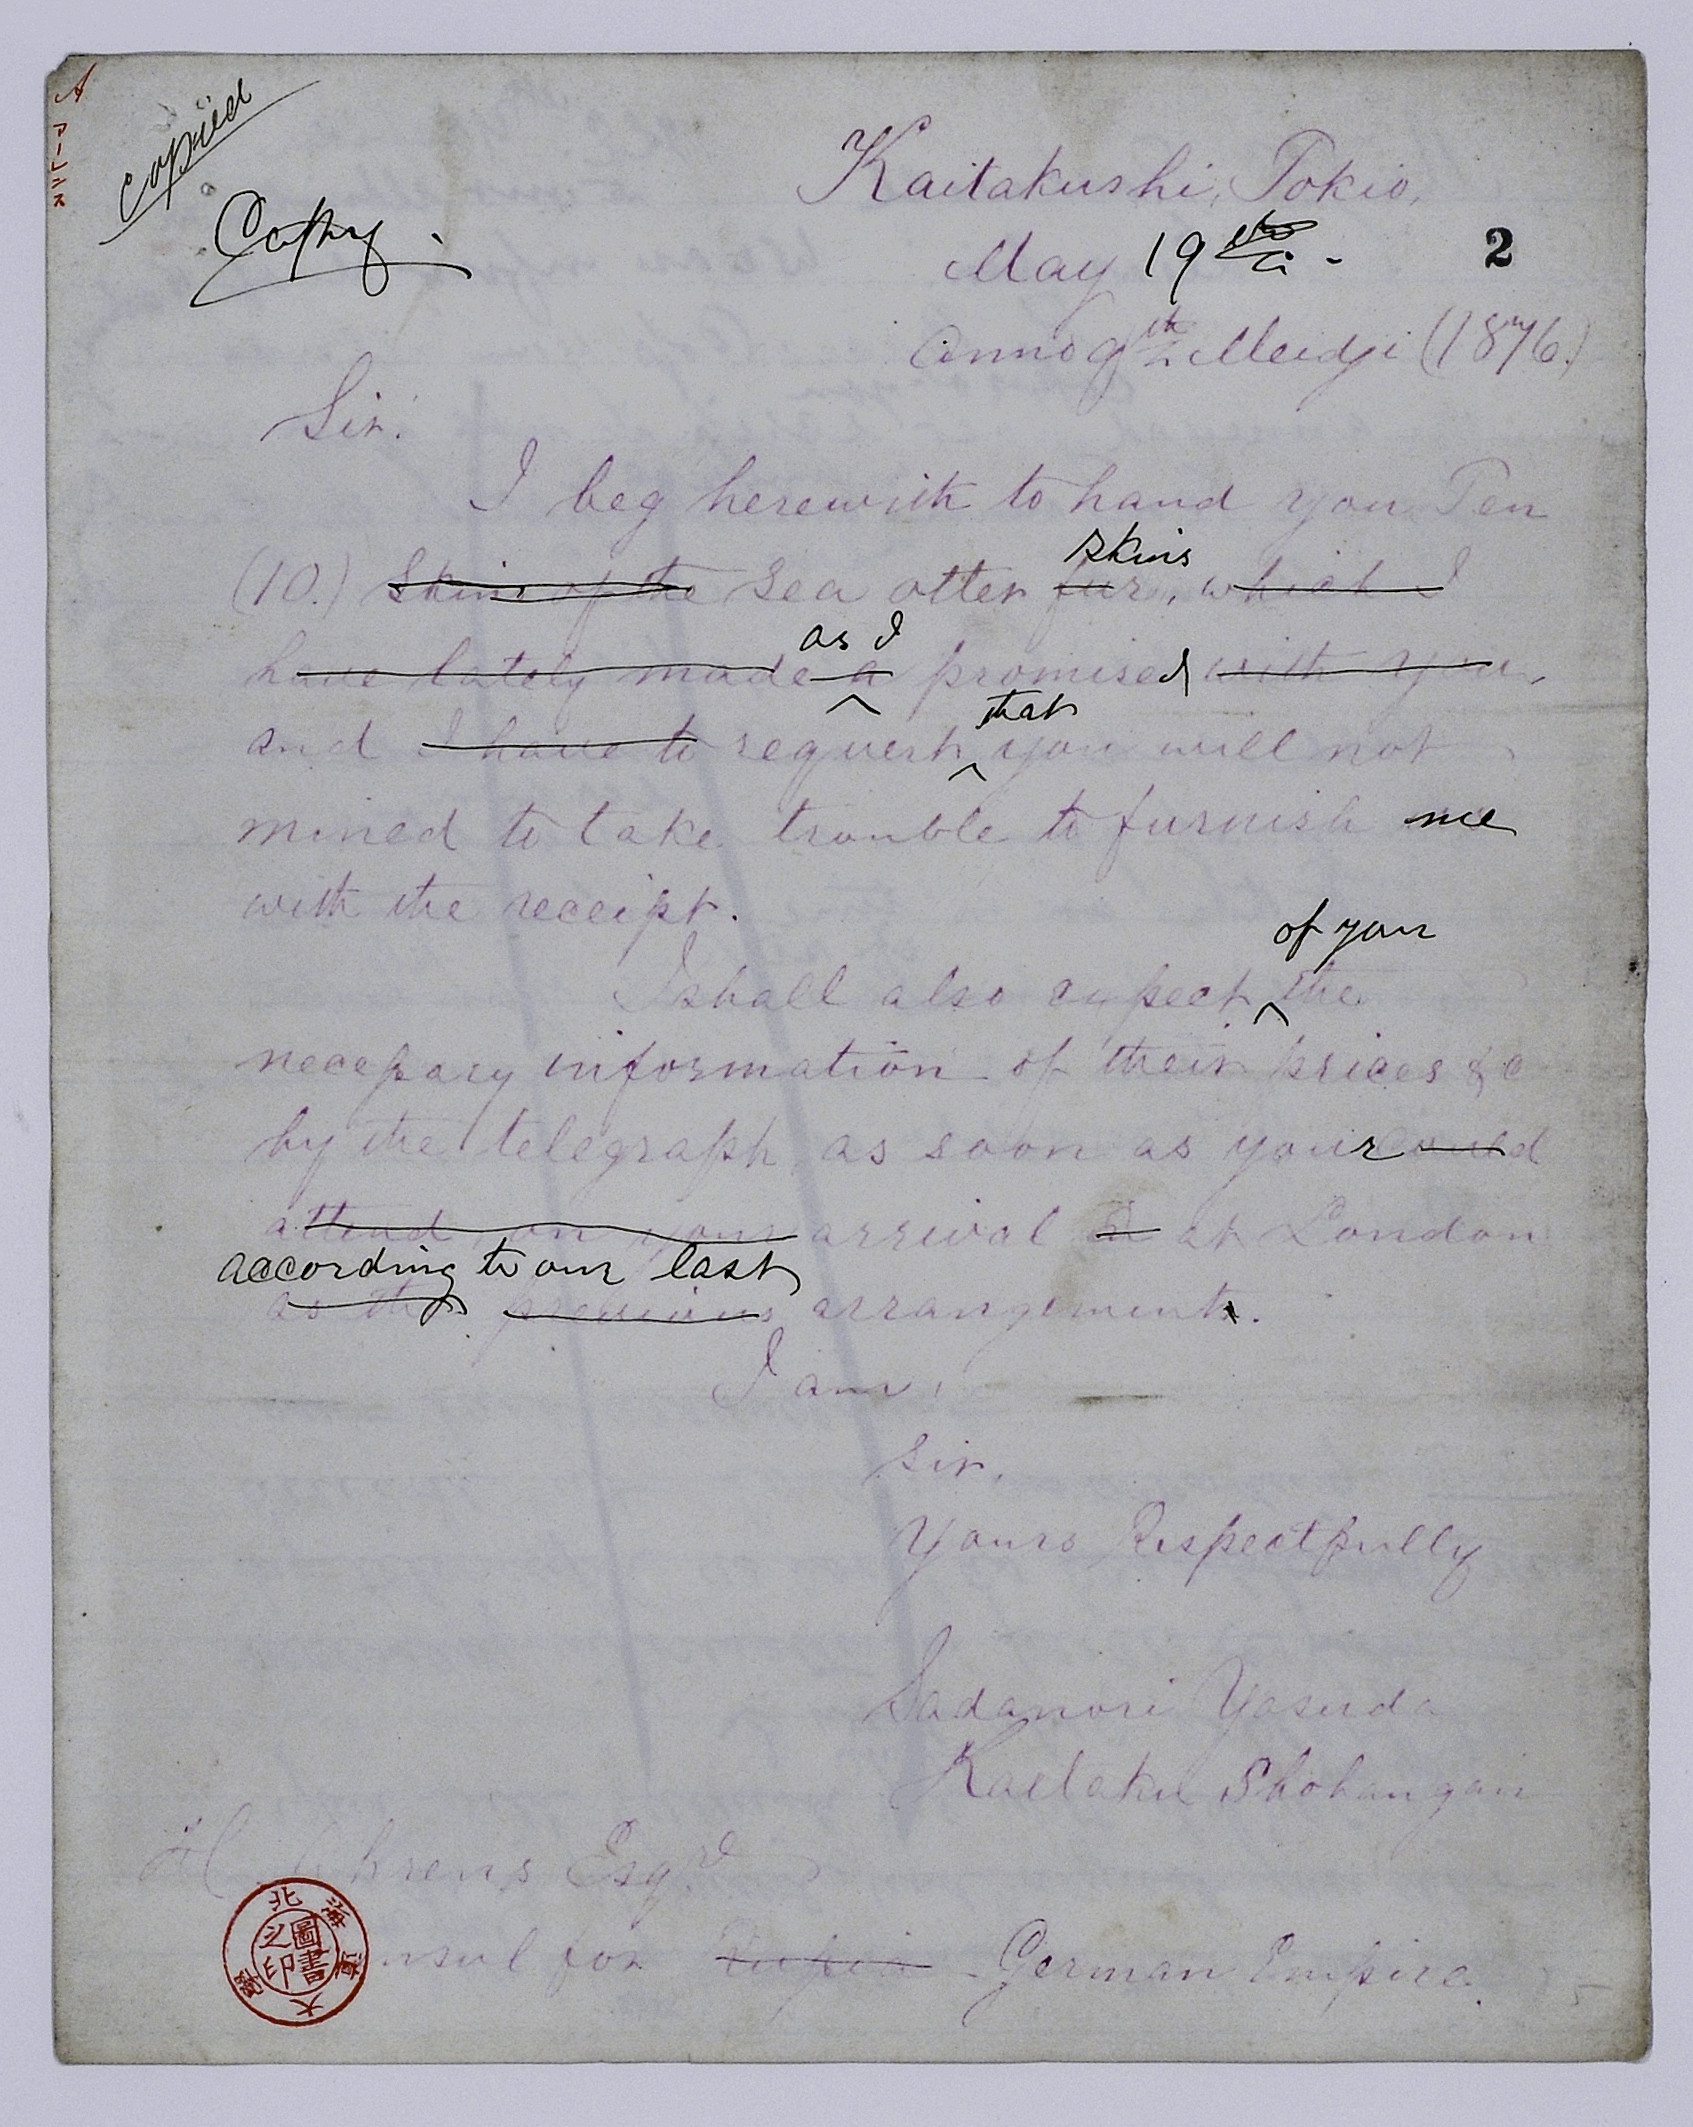 copied
Copy.
Kaitakushi, Tokio,
May 19th -
2
Anno 9th Meidji (1876.)
Sir.
I beg herewith to hand you Ten
skins
(10.) skins of the sea otter fur, which I
as I
have lately made a promised with you,
that
and I have to request you will not
mined to take trouble to furnish me
with the receipt.
of you
I shall also expect the
necessary information of their prices &c
by the telegraph as soon as your could
attend on your arrival at London
according to our last
as the previous arrangement.
I am,
Sir,
Yours Respectfully
Sadanori Yasuda
Kaitaku Shohangan
H Ahrens Esqr
nsul for Russia German Empire.
北海道大學
圖書之印